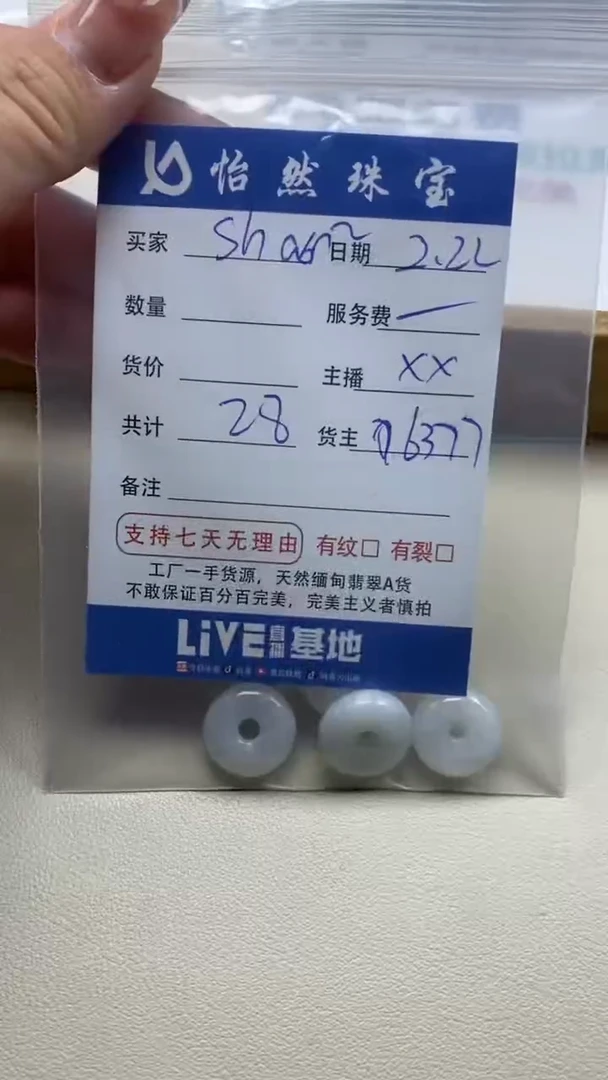 怡然珠宝
买家 Shan 日期 2.22
数量 服务费 —
货价 主播 XX
共计 28 货主 96377
备注
支持七天无理由 有纹□ 有裂□
工厂一手货源，天然缅甸翡翠A货
不敢保证百分百完美，完美主义者慎拍
LiVE直播基地